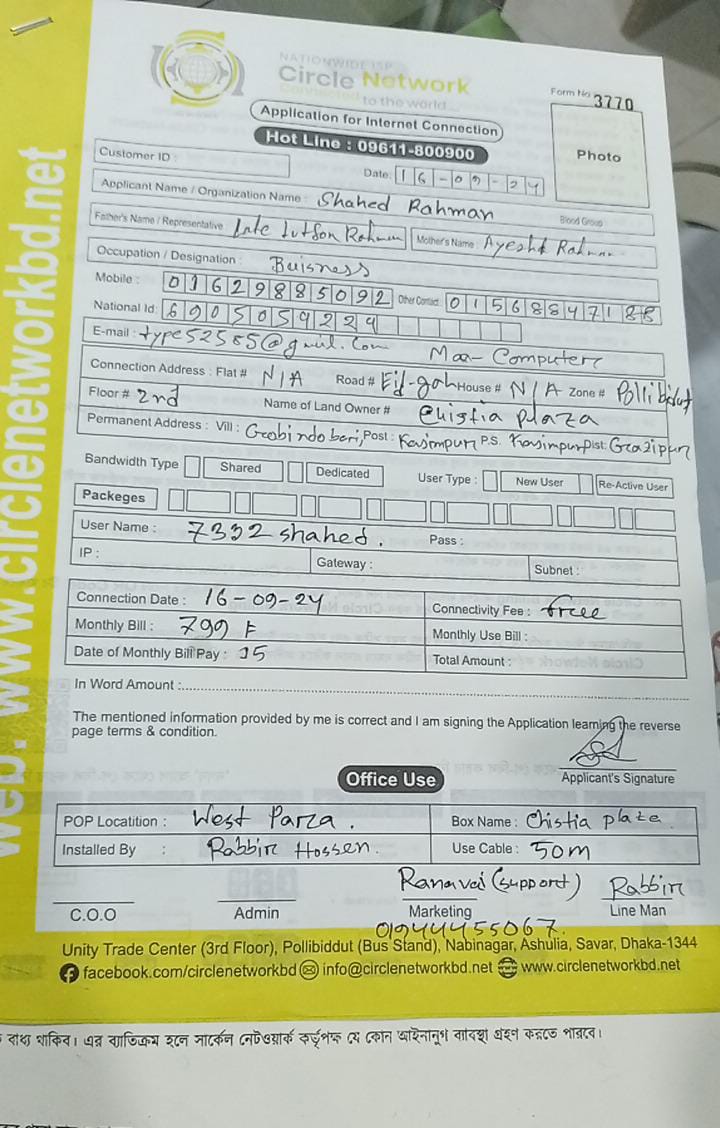 NATIONWIDE ISP
Circle Network
Connected to the world...
Form No 3770
Application for Internet Connection
Hot Line : 09611-800900
Photo
Customer ID :
Date: 16-09-24
Applicant Name / Organization Name : Shahed Rahman
Blood Group
Father's Name / Representative Late Lutfor Rahman Mother's Name : Ayesha Rahman
Occupation / Designation : Buisness
Mobile : 01629885092 Other Contact: 01568847188
National Id: 6905059224
E-mail : type52585@gmail.com Maa- Computer
Connection Address : Flat # N/A Road # Eid-gah House # N/A Zone # Pollibidut
Floor # 2nd Name of Land Owner # Chistia Plaza
Permanent Address : Vill : Gobindo bari, Post : Kasimpur P.S. Kasimpur Dist: Gazipur
Bandwidth Type Shared Dedicated User Type : New User Re-Active User
Packeges
User Name : 7332 shahed. Pass :
IP : Gateway : Subnet :
Connection Date : 16-09-24 Connectivity Fee : free
Monthly Bill : 799 Monthly Use Bill :
Date of Monthly Bill Pay : 15 Total Amount :
In Word Amount :
The mentioned information provided by me is correct and I am signing the Application learning the reverse
page terms & condition.
Applicant's Signature
Office Use
POP Locatition : West Parza. Box Name : Chistia plaza
Installed By : Rabbir Hossen. Use Cable : 50m
(support) Rabbir
C.O.O Admin Marketing Line Man
01944455067.
Unity Trade Center (3rd Floor), Pollibiddut (Bus Stand), Nabinagar, Ashulia, Savar, Dhaka-1344
facebook.com/circlenetworkbd info@circlenetworkbd.net www.circlenetworkbd.net
web: www.circlenetworkbd.net
বাধ্য থাকিব। এর ব্যতিক্রম হলে সার্কেল নেটওয়ার্ক কর্তৃপক্ষ যে কোন আইনানুগ ব্যবস্থা গ্রহণ করতে পারবে।